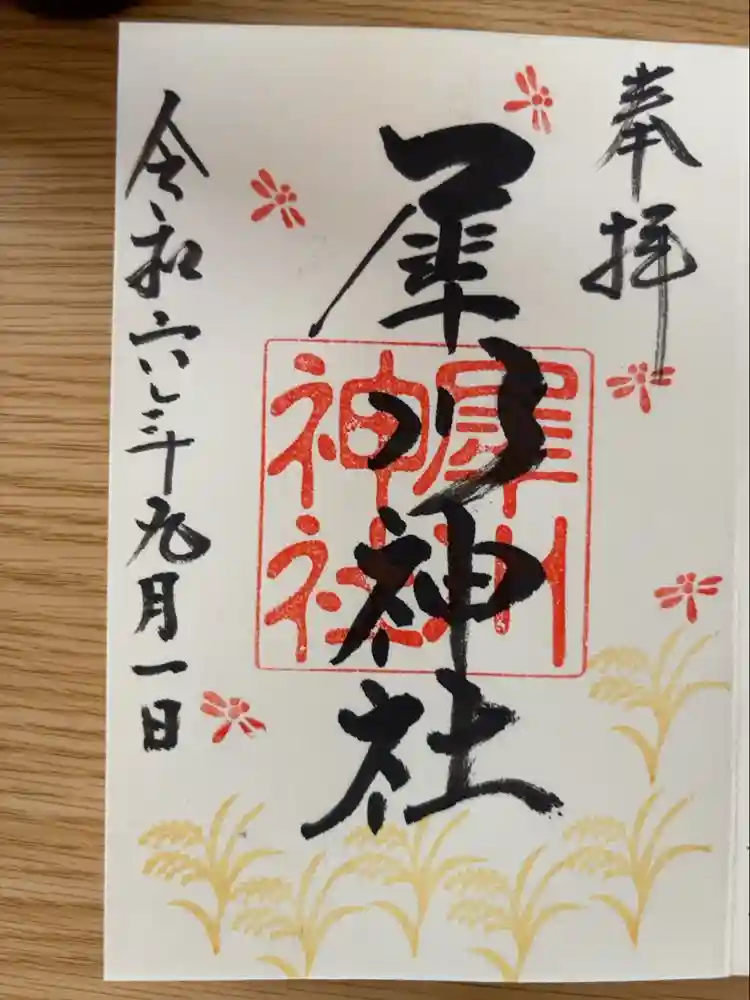 奉拝
犀川神社
犀川
神社
令和六年九月一日